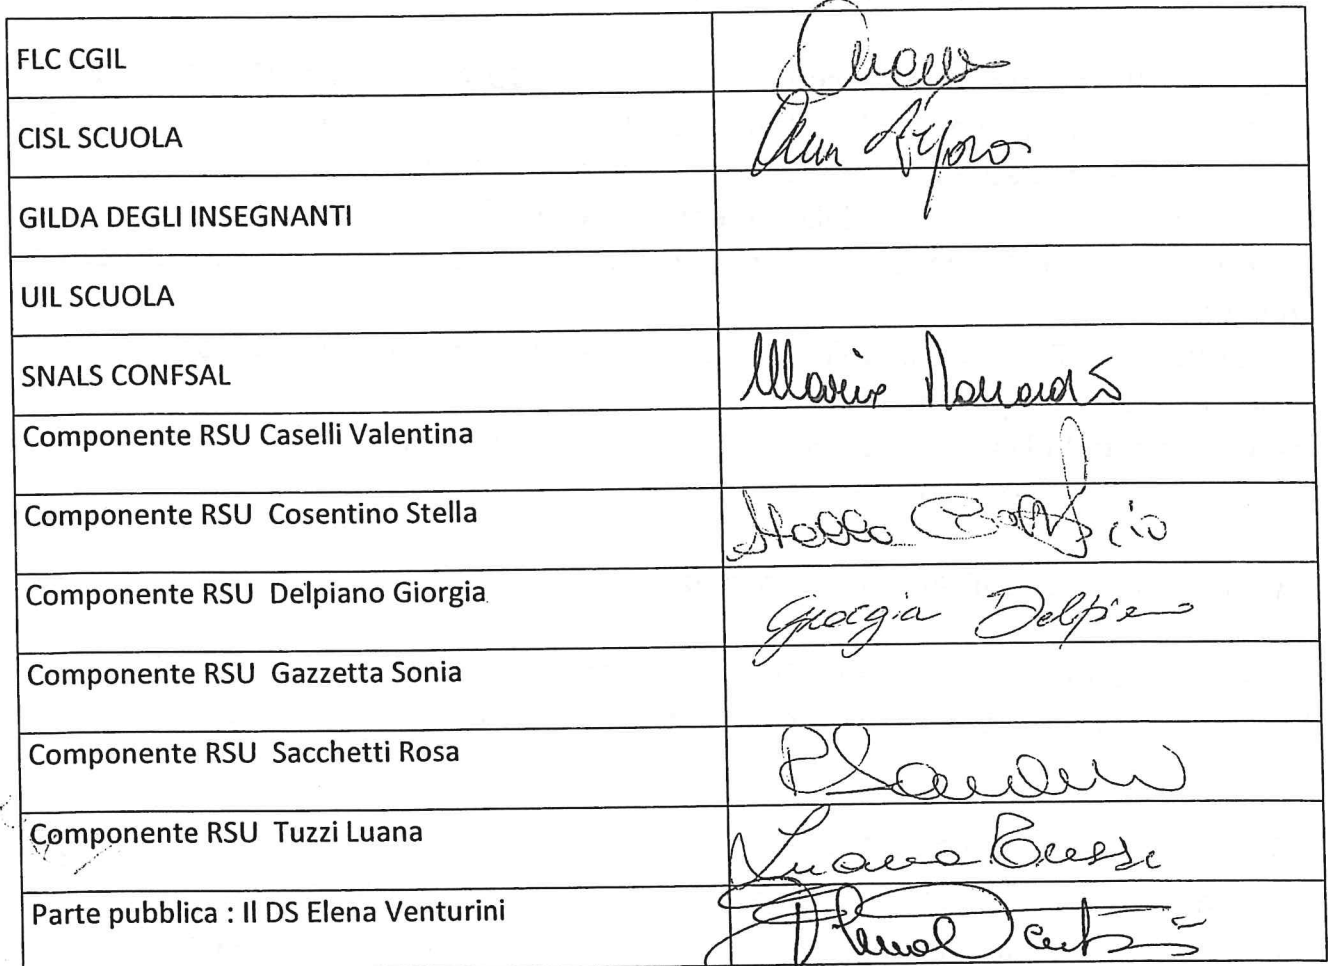 FLC CGIL
CISL SCUOLA
GILDA DEGLI INSEGNANTI
UIL SCUOLA
SNALS CONFSAL
Componente RSU Caselli Valentina
Componente RSU Cosentino Stella
Stella
Componente RSU Delpiano Giorgia
Giorgia Delpiano
Componente RSU Gazzetta Sonia
Componente RSU Sacchetti Rosa
Componente RSU Tuzzi Luana
Luana Tuzzi
Parte pubblica : Il DS Elena Venturini